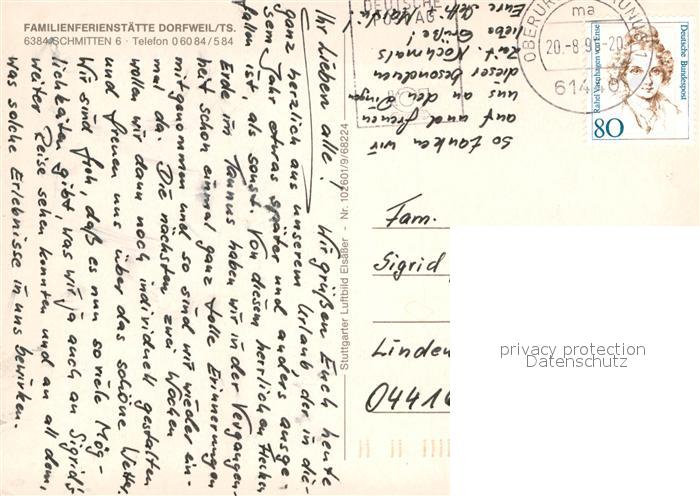 FAMILIENFERIENSTÄTTE DORFWEIL/TS.
6384 SCHMITTEN 6 · Telefon 0 60 84 / 5 84
Ihr Lieben alle! Wir grüßen Euch heute
ganz herzlich aus unserem Urlaub der in die-
sem Jahr etwas später und anders ausge-
fallen ist als sonst. Von diesem herrlichen Flecken
Erde im Taunus haben wir in der Vergangen-
heit schon einmal ganz tolle Erinnerungen
mitgenommen und so sind wir wieder ein-
mal da. Die nächsten zwei Wochen
wollen wir dann noch individuell gestalten
und freuen uns über das schöne Wetter.
Wir sind froh, daß es nun so viele Mög-
lichkeiten gibt, was wir ja auch an Sigrid's
weiter Reise sehen konnten und an all dem,
was solche Erlebnisse in uns bewirken.
So tanken wir
auf und freuen
uns an den Dingen
dieser besonderen
Zeit. Nochmals
liebe Grüße!
Eure
Stuttgarter Luftbild Elsäßer - Nr. 102601/9/68224
DEUTSCHE
OBERURSEL (TAUNUS)
ma
20.-8.9
-20
614
Deutsche Bundespost
Rahel Varnhagen von Ense
80
Fam.
Sigrid
Linden
04416
privacy protection
Datenschutz